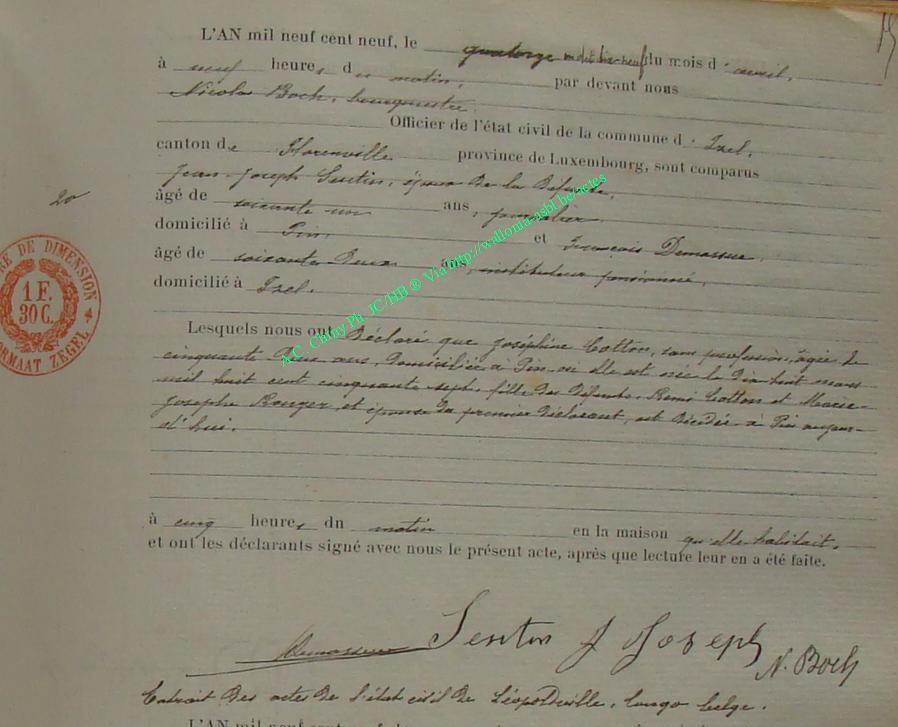 15
L'AN mil neuf cent neuf, le quatorze mil dix-neuf du mois d'avril,
à neuf heures du matin, par devant nous
Nicolas Boch, bourgmestre
Officier de l'état civil de la commune d'Izel,
canton de Florenville province de Luxembourg, sont comparus
Jean-Joseph Sentin, époux de la Défunte,
âgé de soixante un ans, journalier
domicilié à Pin, et François Demasseur,
âgé de soixante deux ans, instituteur pensionné,
domicilié à Izel.
20
TIMBRE DE DIMENSION
1 F.
30 C.
FORMAAT ZEGEL
A.C. Chiny Ph. JC/HB ® Via http://wallonia-asbl.be/actes
Lesquels nous ont Déclaré que Joséphine Cotton, sans profession, âgée de
cinquante Deux ans, Domiciliée à Pin, où elle est née le Dix huit mars
mil huit cent cinquante sept, fille des Défunts, Remi Cotton et Marie-
Josephe et épouse du premier Déclarant, est Décédée à Pin aujour-
d'hui.
à cinq heures du matin en la maison qu'elle habitait.
et ont les déclarants signé avec nous le présent acte, après que lecture leur en a été faite.
Demasseur Sentin J Joseph N. Boch
Extrait des actes de l'état civil de Léopoldville, Congo belge.
L'AN mil neuf cent